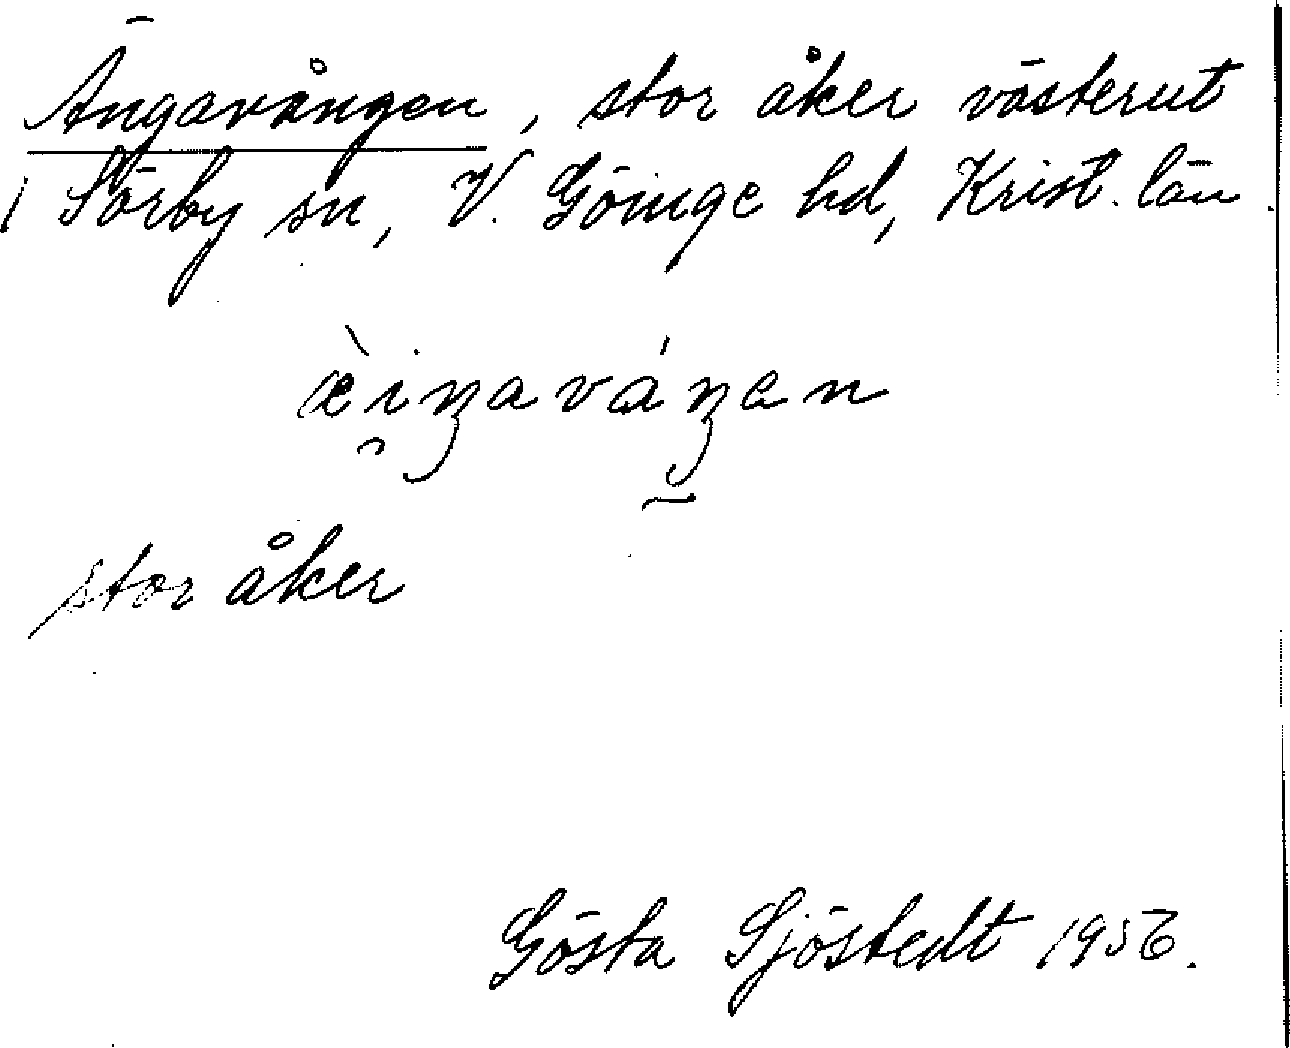 Ängavången, stor åker västerut
i Sörby sn, V. Göinge hd, Krist. län.
æ̀i̯ŋaváŋen
stor åker
Gösta Sjöstedt 1956.